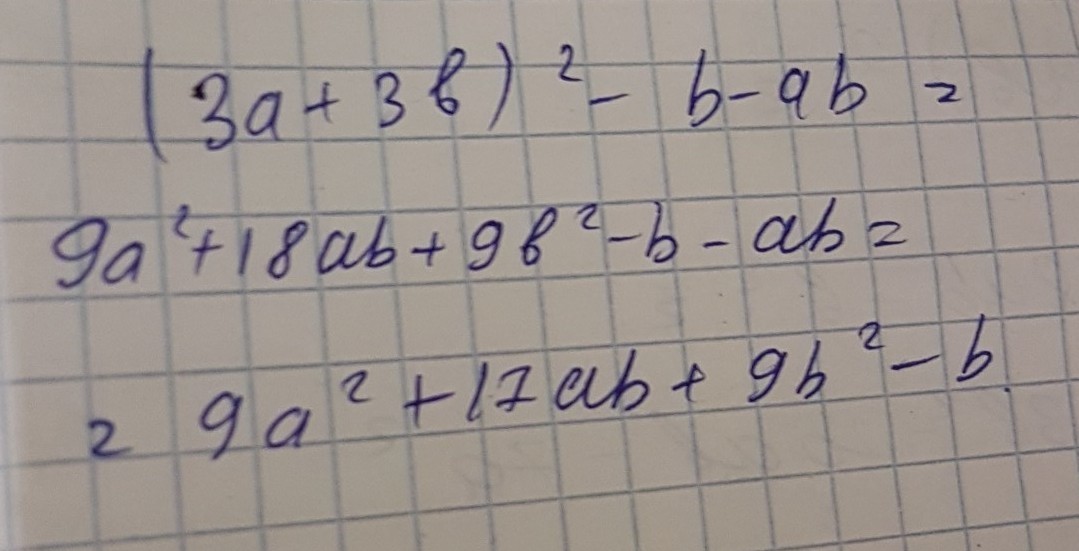 (3a+3b)²- b-ab =
9a²+18ab+9b²-b-ab=
= 9a²+17ab+9b²-b.